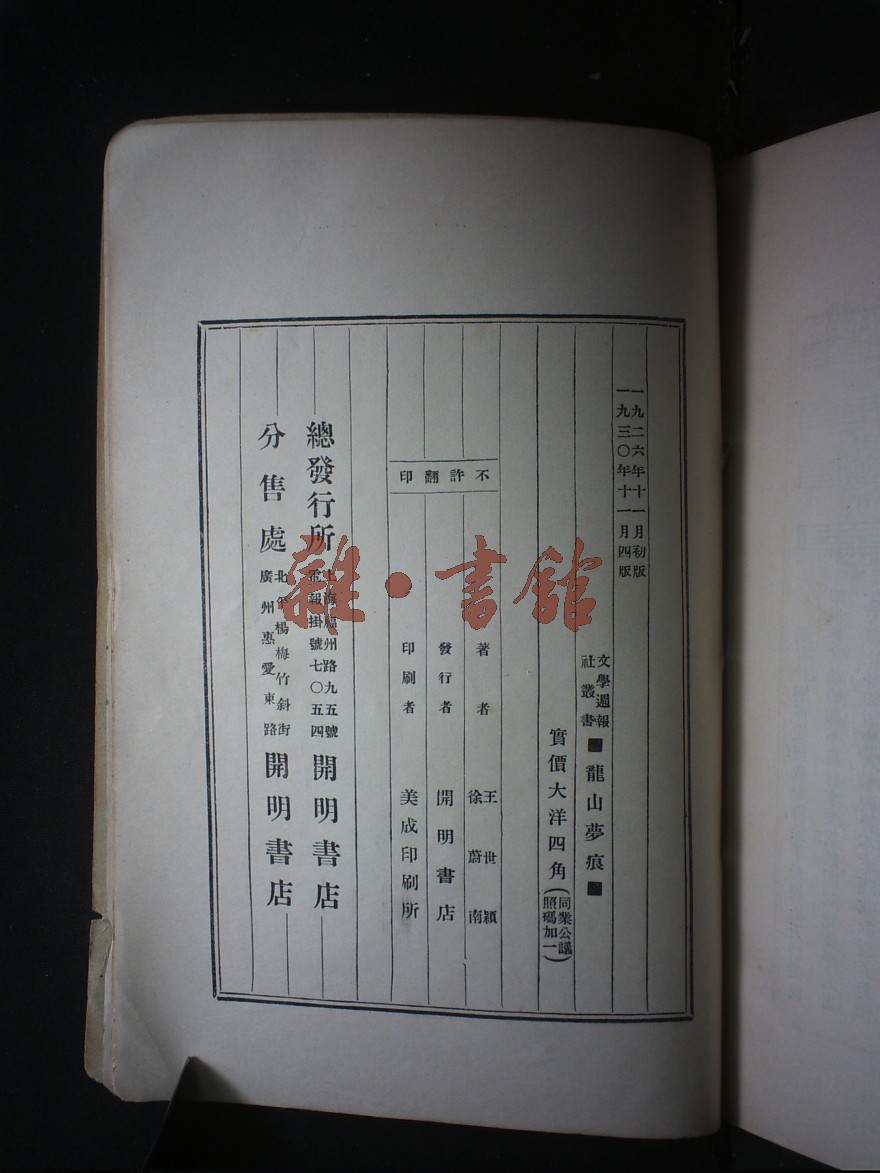 一九二六年十一月初版
一九三〇年十一月四版
文學週報
社叢書
■龍山夢痕■
實價大洋四角
(同業公議
照碼加一)
不許翻印
著者
王世穎
徐蔚南
發行者
開明書店
印刷者
美成印刷所
總發行所
上海福州路九五號
電報掛號七〇五四
開明書店
分售處
北平楊梅竹斜街
廣州惠愛東路
開明書店
雜·書館